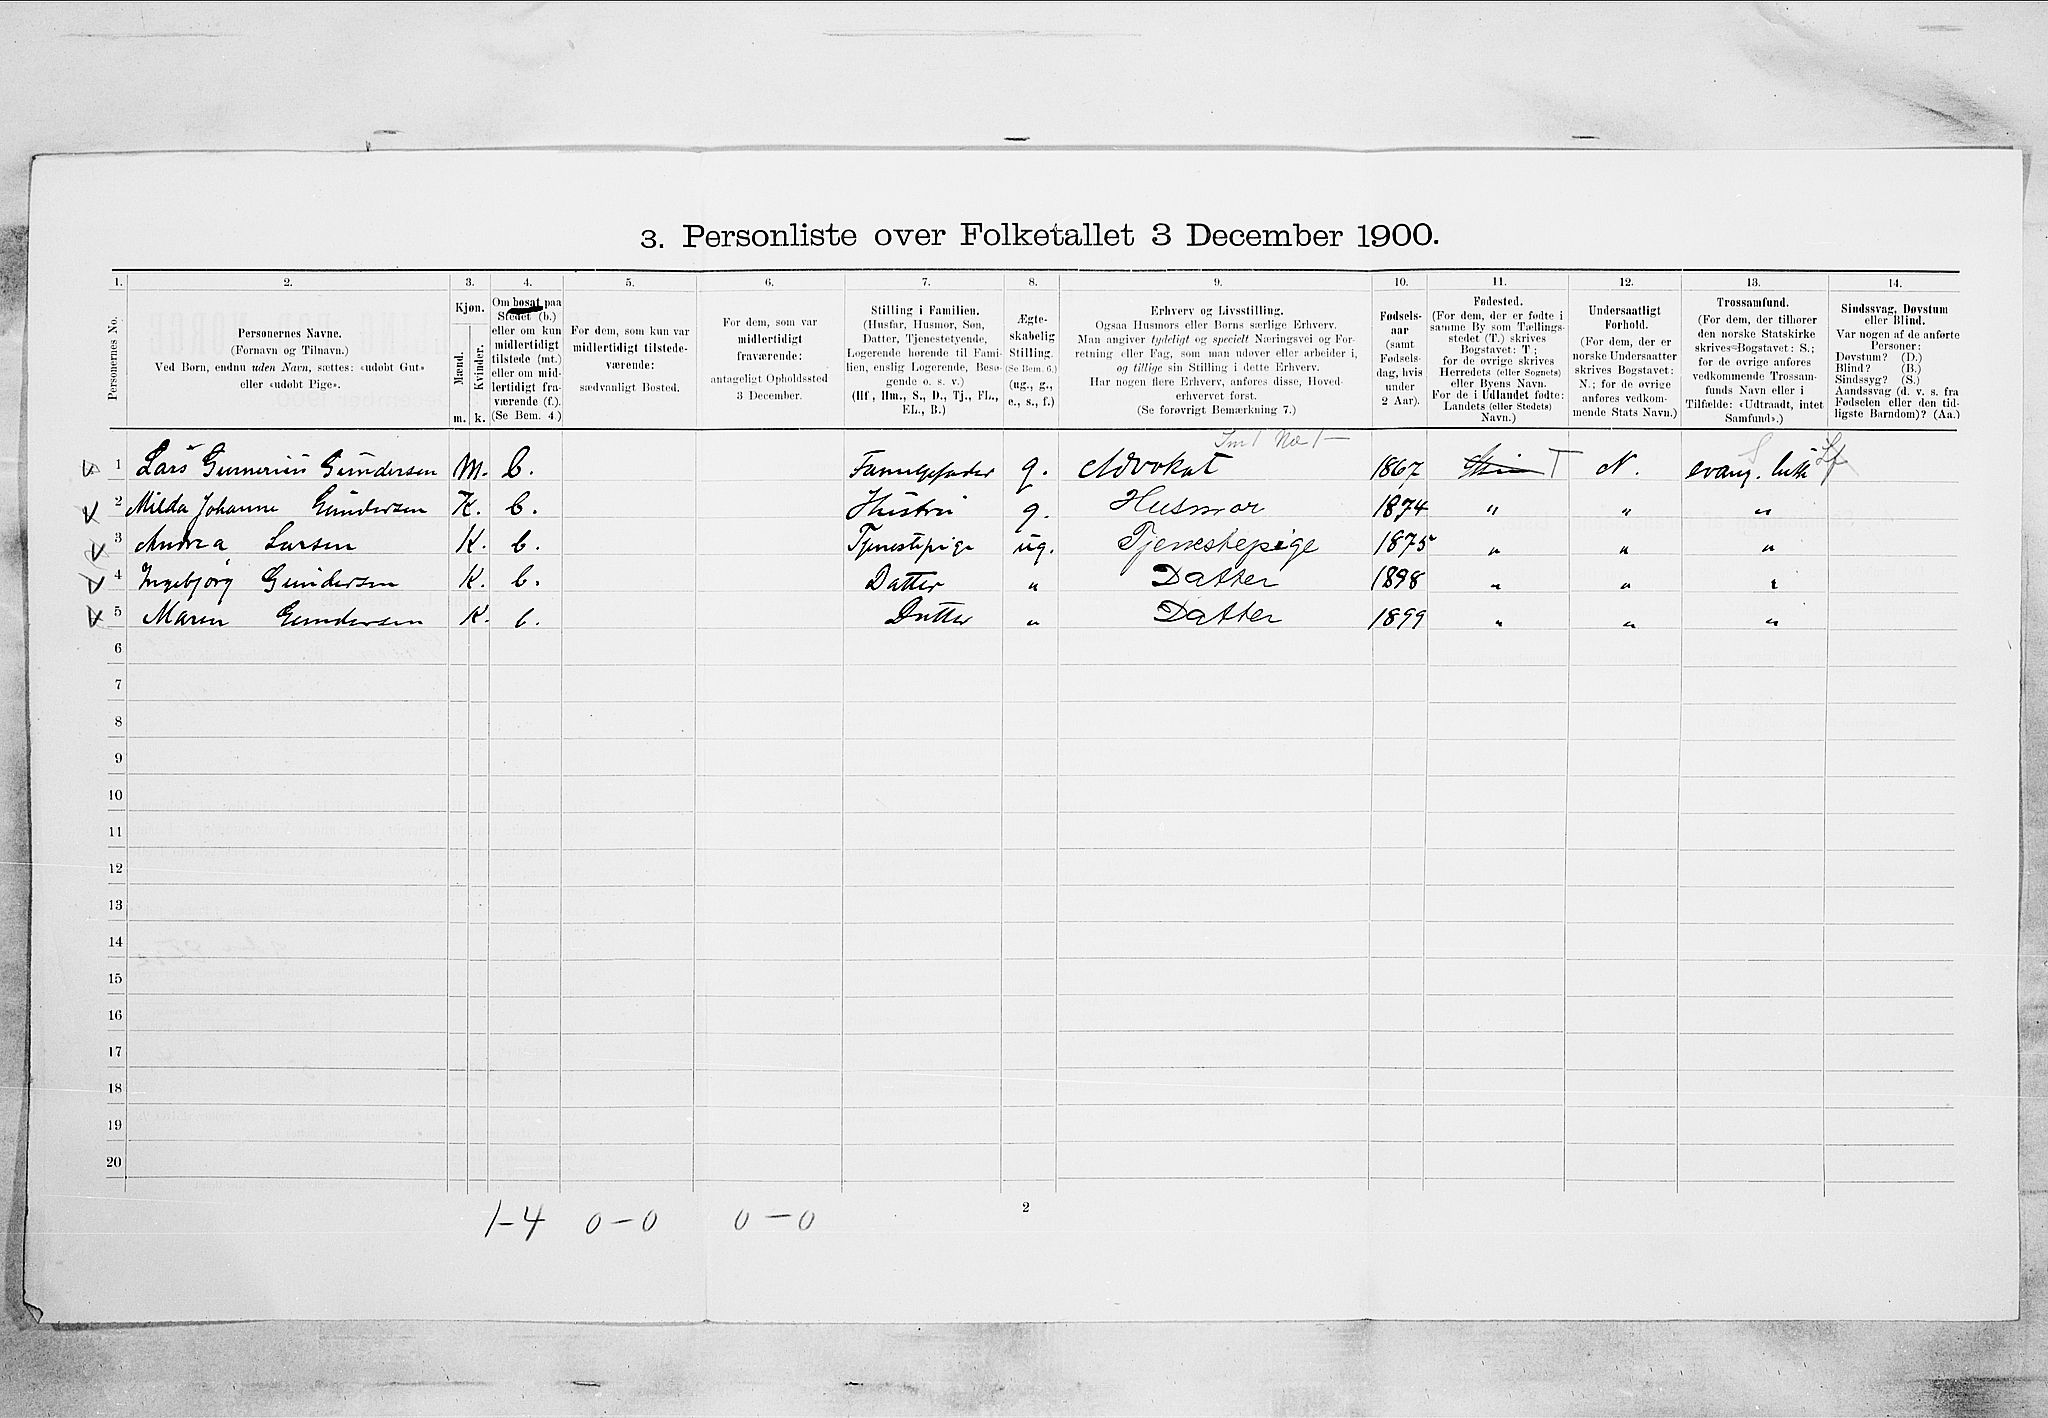 3. Personliste over Folketallet 3 December 1900.
1. 2. 3. 4. 5. 6. 7. 8. 9. 10. 11. 12. 13. 14.
Personernes No.
Personernes Navne.
(Fornavn og Tilnavn.)
Ved Børn, endnu uden Navn, sættes: «udøbt Gut»
eller «udøbt Pige».
Kjøn.
Mænd.
Kvinder.
m. k.
Om bosat paa
Stedet (b.)
eller om kun
midlertidigt
tilstede (mt.)
eller om mid-
lertidigt fra-
værende (f.)
(Se Bem. 4.)
For dem, som kun var
midlertidigt tilstede-
værende:
sædvanligt Bosted.
For dem, som var
midlertidigt
fraværende:
antageligt Opholdssted
3 December.
Stilling i Familien.
(Husfar, Husmor, Søn,
Datter, Tjenestetyende,
Logerende hørende til Fami-
lien, enslig Logerende, Besø-
gende o. s. v.)
(Hf, Hm., S., D., Tj., FL.,
EL., B.)
Ægte-
skabelig
Stilling.
(Se Bem. 6.)
(ug., g.,
e., s., f.)
Erhverv og Livsstilling.
Ogsaa Husmors eller Børns særlige Erhverv.
Man angiver tydeligt og specielt Næringsvei og For-
retning eller Fag, som man udøver eller arbeider i,
og tillige sin Stilling i dette Erhverv.
Har nogen flere Erhverv, anføres disse, Hoved-
erhvervet først.
(Se forøvrigt Bemærkning 7.)
Fødsels-
aar
(samt
Fødsels-
dag, hvis
under
2 Aar).
Fødested.
(For dem, der er fødte i
samme By som Tællings-
stedet (T.) skrives
Bogstavet: T;
for de øvrige skrives
Herredets (eller Sognets)
eller Byens Navn.
For de i Udlandet fødte:
Landets (eller Stedets)
Navn.)
Undersaatligt
Forhold.
(For dem, der er
norske Undersaatter
skrives Bogstavet:
N.; for de øvrige
anføres vedkom-
mende Stats Navn.)
Trossamfund.
(For dem, der tilhører
den norske Statskirke
skrives Bogstavet: S.;
for de øvrige anføres
vedkommende Trossam-
funds Navn eller i
Tilfælde: «Udtraadt, intet
Samfund».)
Sindssvag, Døvstum
eller Blind.
Var nogen af de anførte
Personer:
Døvstum? (D.)
Blind? (B.)
Sindssyg? (S.)
Aandssvag (d. v. s. fra
Fødselen eller den tid-
ligste Barndom)? (Aa.)
1 Lars Gunerius Gundersen M. b. Familjefader g. Advokat 1867 T N. evang. luth
2 Milda Johanne Gundersen K. b. Hustru g. Husmor 1874 " " "
3 Andrea Larsen K. b. Tjenestepige ug. Tjenestepige 1875 " " "
4 Ingebjørg Gundersen K. b. Datter " Datter 1898 " " "
5 Maren Gundersen K. b. Datter " Datter 1899 " " "
6
7
8
9
10
11
12
13
14
15
16
17
18
19
20
1-4 0-0 0-0
2